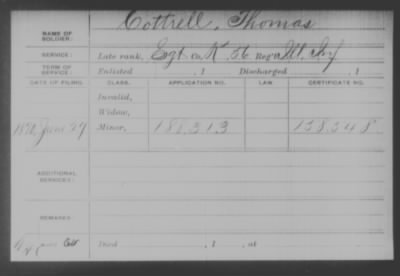 NAME OF SOLDIER: Cottrell, Thomas
SERVICE: Late rank, Sgt Co. K, 56 Reg't Ill. Inf
TERM OF SERVICE: Enlisted , 1 Discharged , 1
DATE OF FILING. CLASS. APPLICATION NO. LAW. CERTIFICATE NO.
Invalid,
Widow,
1870, June 29 Minor, 188313 158548
ADDITIONAL SERVICES:
REMARKS:
Died , 1 , at